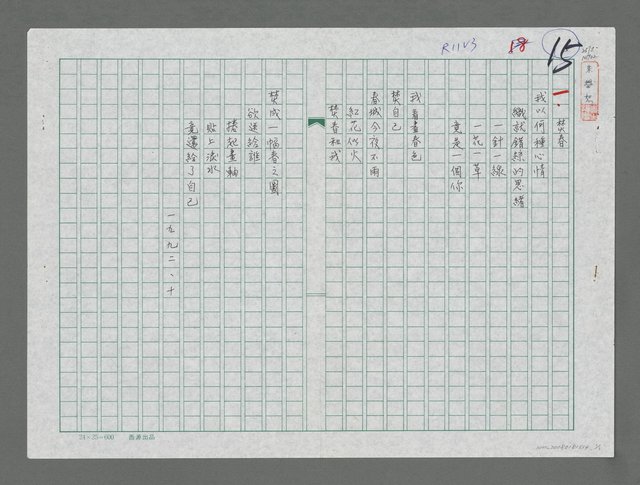 R11V3
18
15
一.
焚春
我以何種心情
織就錯綜的思緒
一針一線
一花一草
竟是一個你
我看盡春色
焚自己
春城今夜不雨
紅花似火
焚春和我
焚成一幅春之圖
欲送給誰
捲起畫軸
貼上流水
竟還給了自己
一九九二、十
24×25=600 西源出品